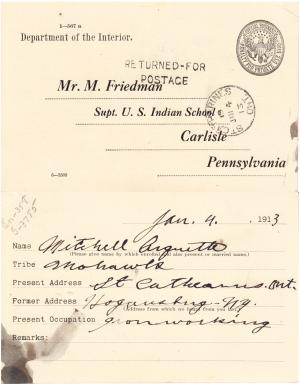 1—567 a
Department of the Interior.
RETURNED-FOR
POSTAGE
Mr. M. Friedman
Supt. U. S. Indian School
Carlisle
Pennsylvania
6—5593
Jan. 4. 1913
Name Mitchell Arquette
(Please give name by which enrolled and also present or married name.)
Tribe Mohawk
Present Address St Catharins. Ont.
Former Address Hogansburg N.Y.
(Address from which we heard from last)
Present Occupation Ironworking
Remarks: